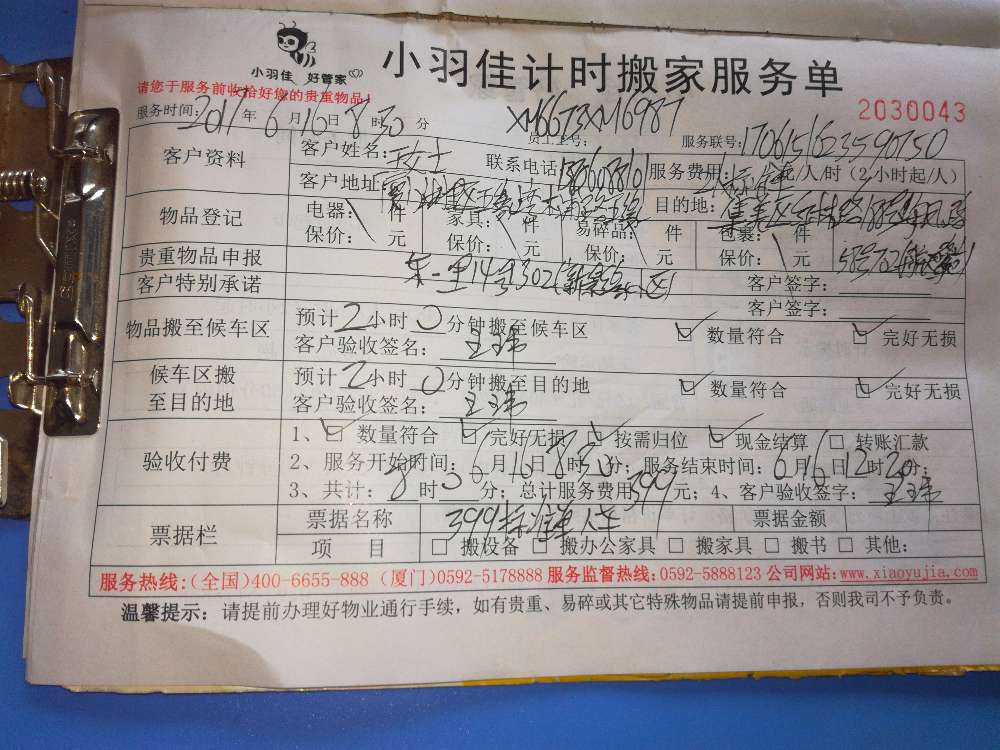 小羽佳 好管家
小羽佳计时搬家服务单
请您于服务前收拾好您的贵重物品!
2030043
服务时间: 2017年6月16日8时30分 员工工号: XM6673XM6987 服务联号:17061516235590750
客户资料 客户姓名: 女士 联系电话 服务费用: 元/人/时(2小时起/人)
客户地址: 目的地: 集美区
物品登记 电器: \ 件 家具: \ 件 易碎品: 件 包裹: \ 件
保价: 元 保价: 元 保价: 元 保价: 元 58号702
贵重物品申报 东一里14号1302
客户特别承诺 客户签字:
客户签字:
物品搬至候车区 预计2小时0分钟搬至候车区 ☑ 数量符合 ☑ 完好无损
客户验收签名: 王玮
候车区搬至目的地 预计2小时0分钟搬至目的地 ☑ 数量符合 ☑ 完好无损
客户验收签名: 王玮
验收付费 1、☑ 数量符合 ☑ 完好无损 ☑ 按需归位 ☑ 现金结算 □ 转账汇款
2、服务开始时间: 6月16日8时30分; 服务结束时间: 6月16日12时20分;
3、共计: 8时0分; 总计服务费用399元; 4、客户验收签字: 王玮
票据栏 票据名称 399标准单人车 票据金额
项 目 □ 搬设备 □ 搬办公家具 □ 搬家具 □ 搬书 □ 其他:
服务热线:(全国)400-6655-888 (厦门)0592-5178888 服务监督热线:0592-5888123 公司网站:www.xiaoyujia.com
温馨提示: 请提前办理好物业通行手续,如有贵重、易碎或其它特殊物品请提前申报,否则我司不予负责。